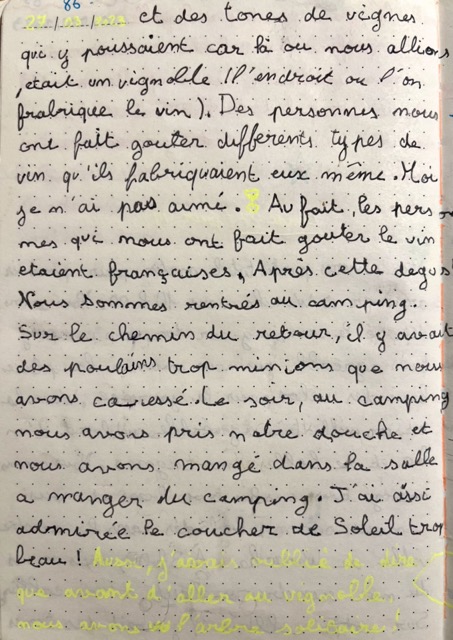 86
27/03/2022 et des tones de vignes
qui y poussaient car là ou nous allions
, etait un vignoble (l'endroit ou l'on
frabrique le vin). Des personnes nous
ont fait gouter differents types de
vin qu'ils fabriquaient eux même. Moi
je n'ai pas aimé. Au fait, les person
mes qui nous ont fait gouter le vin
etaient françaises. Après cette degus
Nous sommes rentrés au camping.
Sur le chemin du retour, il y avait
des poulains trop minions que nous
avons caressé. Le soir, au camping
nous avons pris notre douche et
nous avons mangé dans la salle
a manger du camping. J'ai assi
admirée le coucher de Soleil trop
beau ! Aussi, j'avais oublié de dire
que avant d'aller au vignoble
nous avons vu l'arbre solitaire !